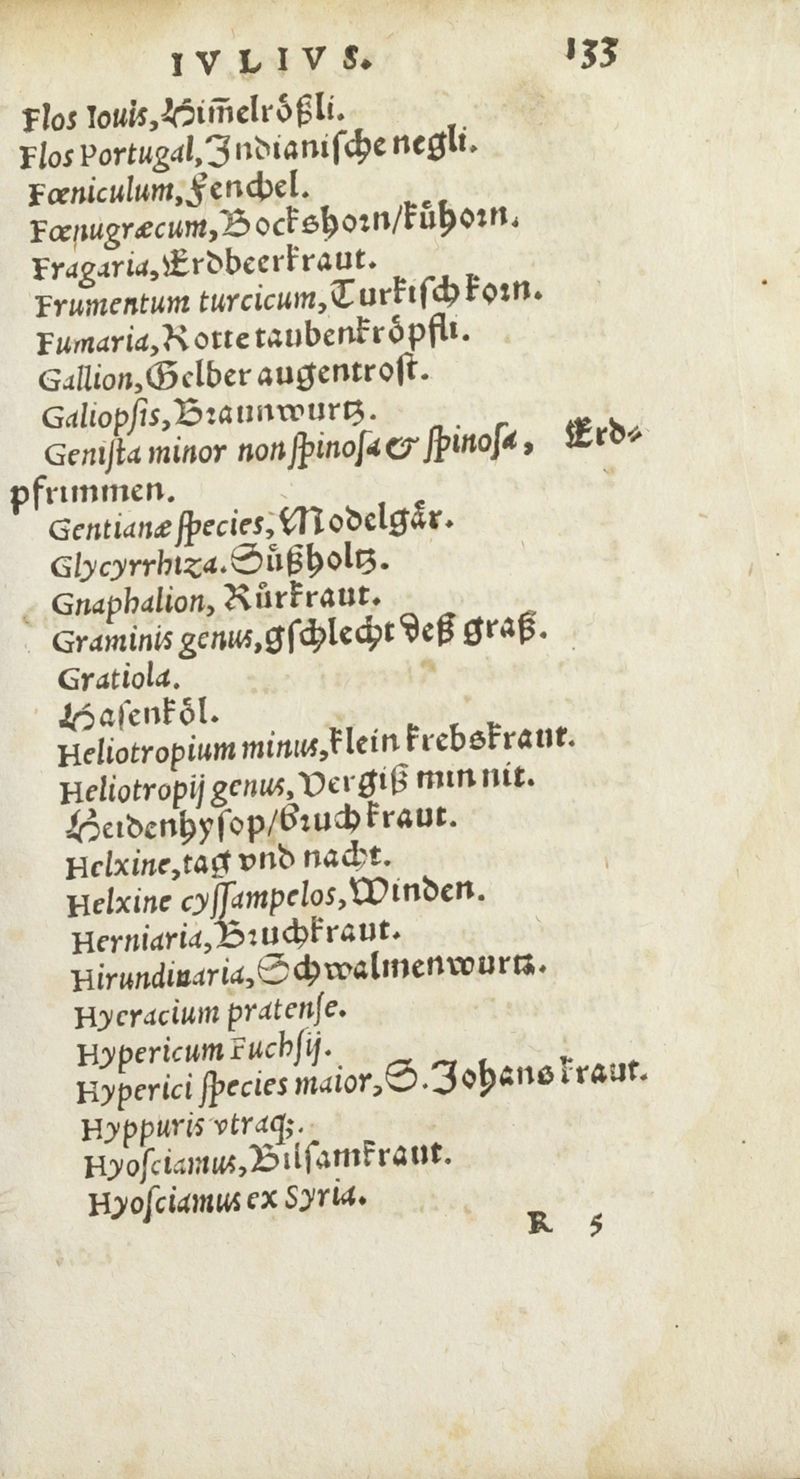 IVLIVS. 133
Flos Iouis, Him̃elrößli.
Flos Portugal, Indianische negli.
Fœniculum, Fenchel.
Fœnugræcum, Bockshorn/kůhorn.
Fragaria, Erdbeerkraut.
Frumentum turcicum, Turkisch korn.
Fumaria, Rotte taubenkröpfli.
Gallion, Gelber augentrost.
Galiopsis, Braunwurtz.
Genista minor non spinosa & spinosa, Erd-
pfrimmen.
Gentianæ species, Modelgår.
Glycyrrhiza. Süßholtz.
Gnaphalion, Růrkraut.
Graminis genus, gschlecht deß graß.
Gratiola.
Hasenköl.
Heliotropium minus, klein krebskraut.
Heliotropij genus, Vergiß min nit.
Heidenhysop/bruchkraut.
Helxine, tag vnd nacht.
Helxine cyssampelos, Winden.
Herniaria, Bruchkraut.
Hirundinaria, Schwalmenwurtz.
Hyeracium pratense.
Hypericum Fuchsij.
Hyperici species maior, S. Johans kraut.
Hyppuris vtraq;.
Hyosciamus, Bilsamkraut.
Hyosciamus ex Syria.
R 5